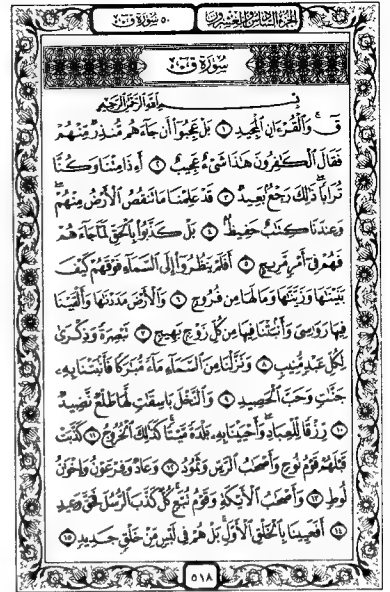 الجزء السادس والعشرون ٥٠ سورة ق
سورة ق
بسم الله الرحمن الرحيم
قٓ ۚ وَالْقُرْءَانِ الْمَجِيدِ ١ بَلْ عَجِبُوٓا أَن جَآءَهُم مُّنذِرٌ مِّنْهُمْ
فَقَالَ الْكَٰفِرُونَ هَٰذَا شَىْءٌ عَجِيبٌ ٢ أَءِذَا مِتْنَا وَكُنَّا
تُرَابًا ۖ ذَٰلِكَ رَجْعٌۢ بَعِيدٌ ٣ قَدْ عَلِمْنَا مَا تَنقُصُ الْأَرْضُ مِنْهُمْ ۖ
وَعِندَنَا كِتَٰبٌ حَفِيظٌۢ ٤ بَلْ كَذَّبُوا بِالْحَقِّ لَمَّا جَآءَهُمْ
فَهُمْ فِىٓ أَمْرٍ مَّرِيجٍ ٥ أَفَلَمْ يَنظُرُوٓا إِلَى السَّمَآءِ فَوْقَهُمْ كَيْفَ
بَنَيْنَٰهَا وَزَيَّنَّٰهَا وَمَا لَهَا مِن فُرُوجٍ ٦ وَالْأَرْضَ مَدَدْنَٰهَا وَأَلْقَيْنَا
فِيهَا رَوَٰسِىَ وَأَنۢبَتْنَا فِيهَا مِن كُلِّ زَوْجٍۭ بَهِيجٍ ٧ تَبْصِرَةً وَذِكْرَىٰ
لِكُلِّ عَبْدٍ مُّنِيبٍ ٨ وَنَزَّلْنَا مِنَ السَّمَآءِ مَآءً مُّبَٰرَكًا فَأَنۢبَتْنَا بِهِۦ
جَنَّٰتٍ وَحَبَّ الْحَصِيدِ ٩ وَالنَّخْلَ بَاسِقَٰتٍ لَّهَا طَلْعٌ نَّضِيدٌ
١٠ رِّزْقًا لِّلْعِبَادِ ۖ وَأَحْيَيْنَا بِهِۦ بَلْدَةً مَّيْتًا ۚ كَذَٰلِكَ الْخُرُوجُ ١١ كَذَّبَتْ
قَبْلَهُمْ قَوْمُ نُوحٍ وَأَصْحَٰبُ الرَّسِّ وَثَمُودُ ١٢ وَعَادٌ وَفِرْعَوْنُ وَإِخْوَٰنُ
لُوطٍ ١٣ وَأَصْحَٰبُ الْأَيْكَةِ وَقَوْمُ تُبَّعٍ ۚ كُلٌّ كَذَّبَ الرُّسُلَ فَحَقَّ وَعِيدِ
١٤ أَفَعَيِينَا بِالْخَلْقِ الْأَوَّلِ ۚ بَلْ هُمْ فِى لَبْسٍ مِّنْ خَلْقٍ جَدِيدٍ ١٥
٥١٨